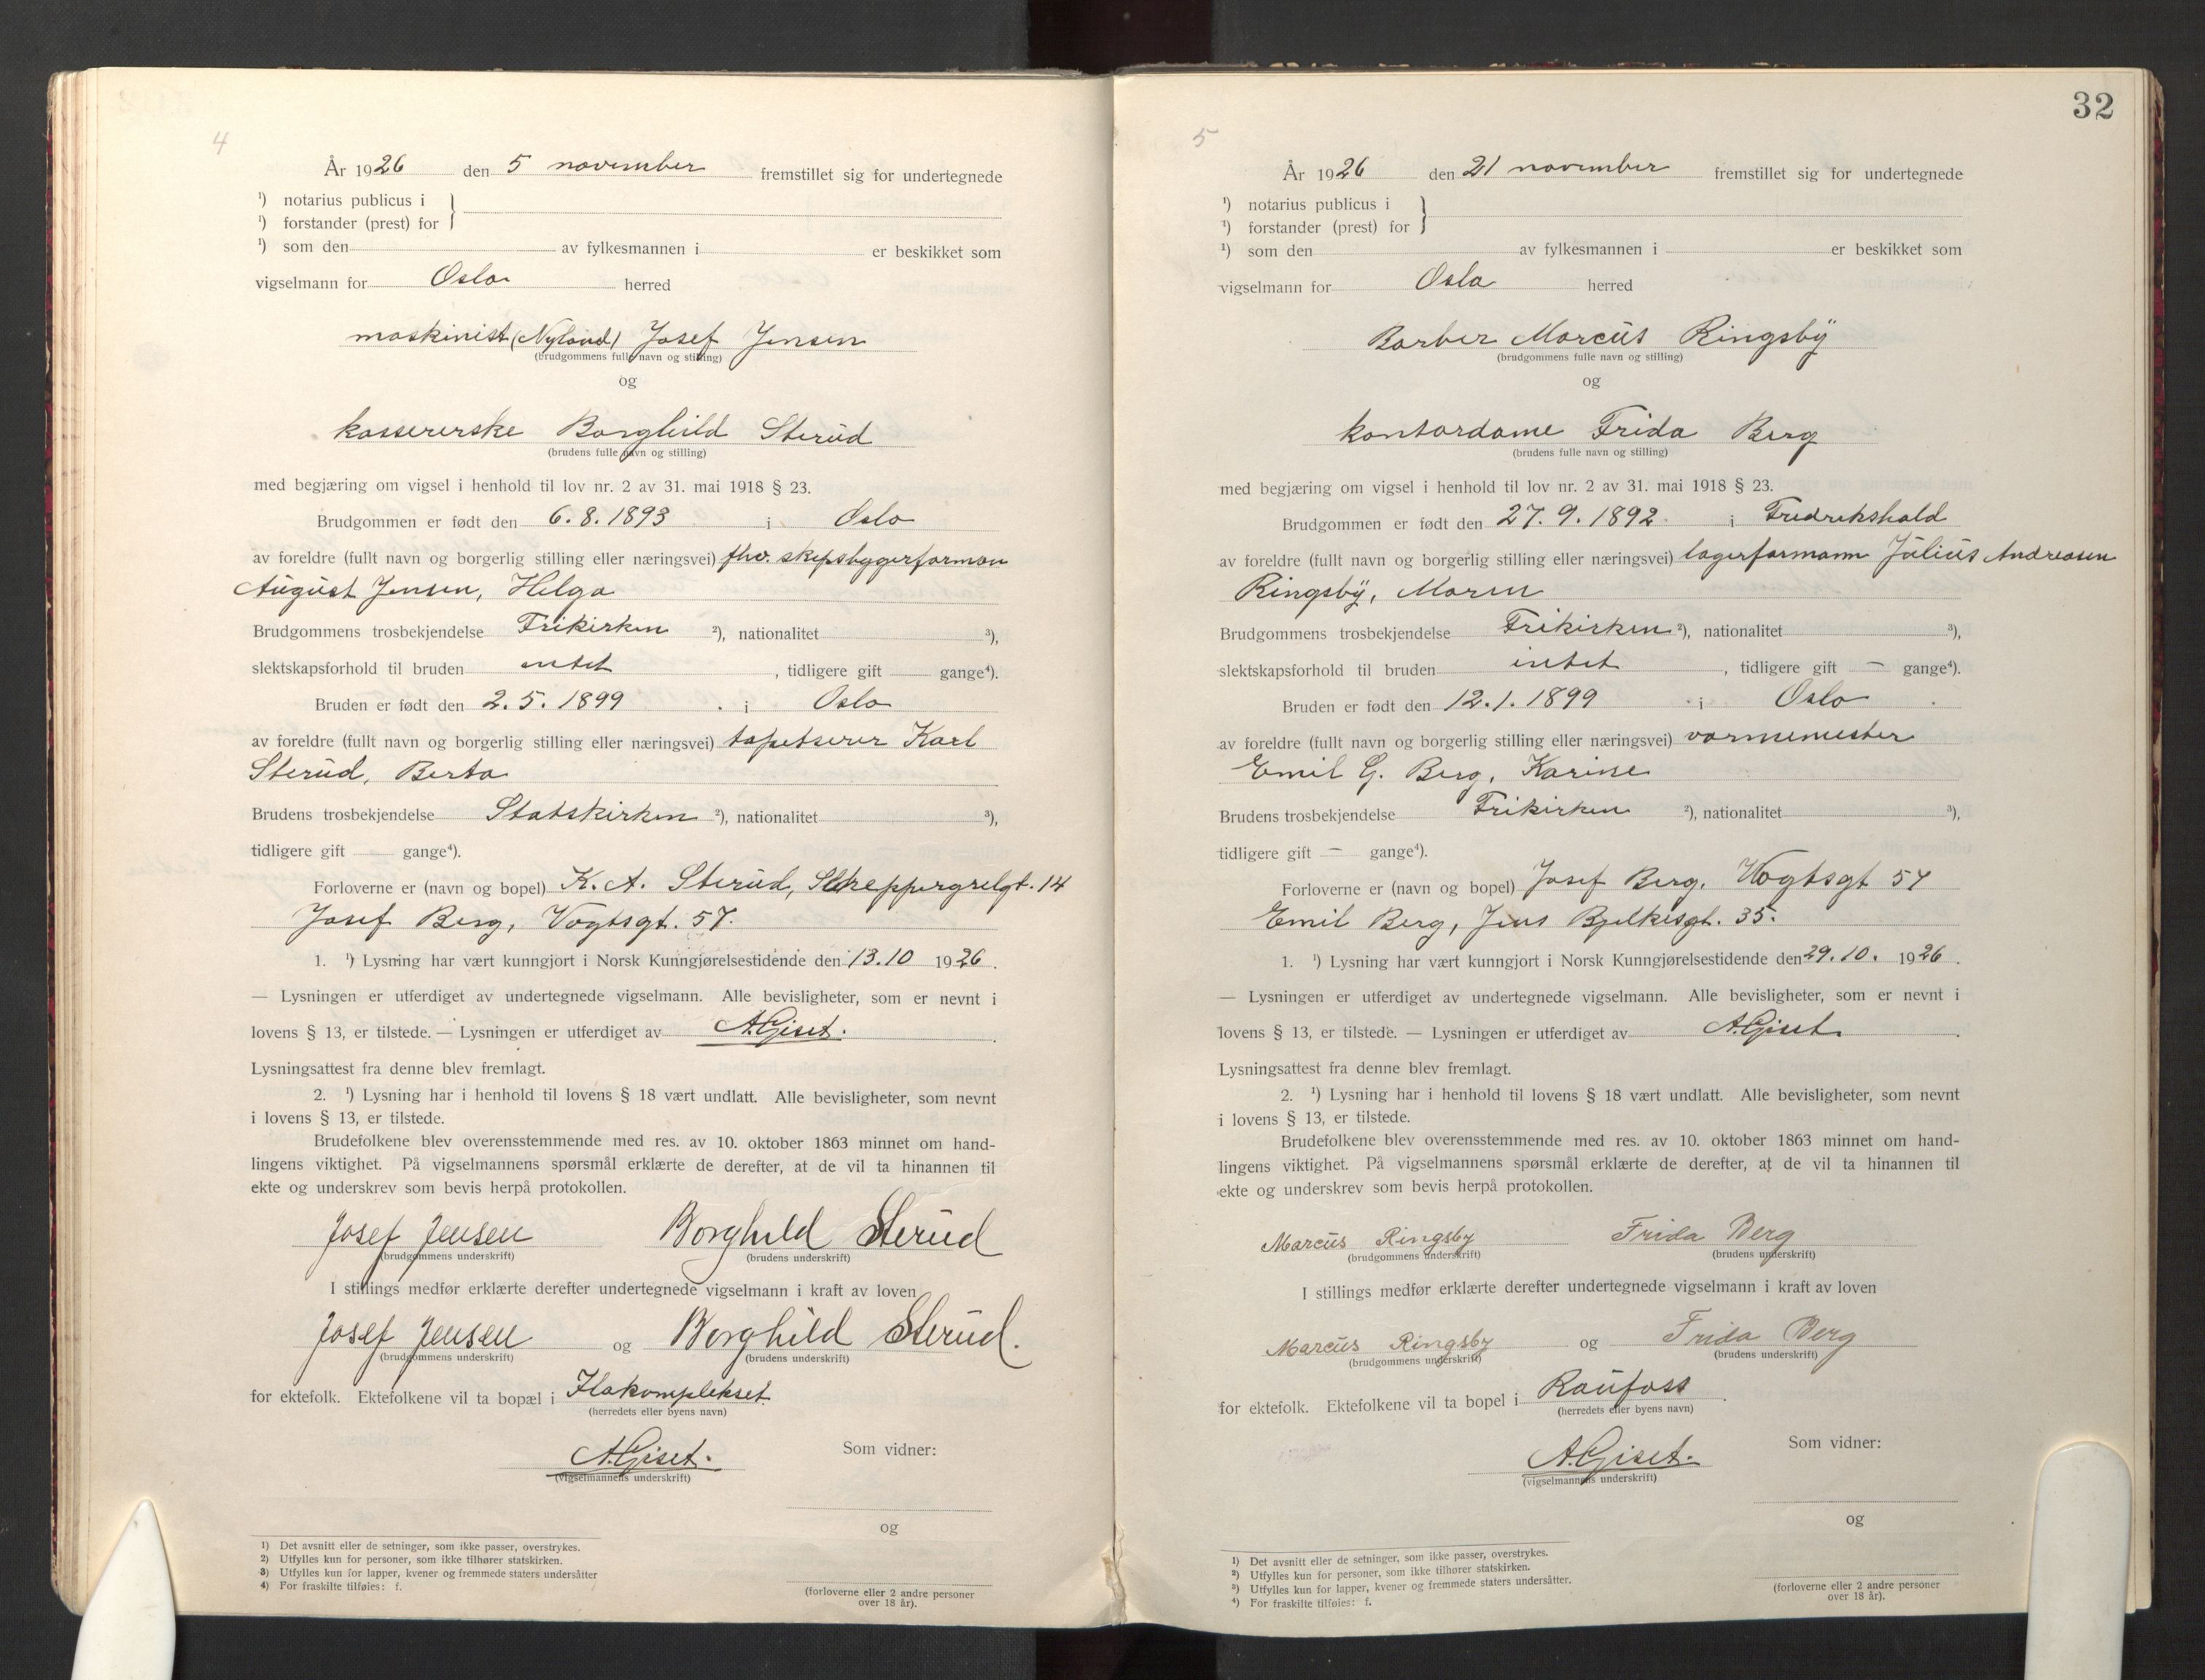 4
År 1926 den 5 november fremstillet sig for undertegnede
¹) notarius publicus i
¹) forstander (prest) for }
¹) som den av fylkesmannen i er beskikket som
vigselmann for Oslo herred
maskinist (Nyland) Josef Jensen
(brudgommens fulle navn og stilling)
og
kassererske Borghild Sterud
(brudens fulle navn og stilling)
med begjæring om vigsel i henhold til lov nr. 2 av 31. mai 1918 § 23.
Brudgommen er født den 6.8.1893 i Oslo
av foreldre (fullt navn og borgerlig stilling eller næringsvei) fhv. skipsbyggerforman
August Jensen, Helga
Brudgommens trosbekjendelse Frikirken ²), nationalitet ³),
slektskapsforhold til bruden intet, tidligere gift — gange⁴).
Bruden er født den 2.5.1899 i Oslo
av foreldre (fullt navn og borgerlig stilling eller næringsvei) tapetserer Karl
Sterud, Berta
Brudens trosbekjendelse Statskirken ²), nationalitet ³),
tidligere gift — gange⁴).
Forloverne er (navn og bopel) K. A. Sterud, 14
Josef Berg, Vogtsgt. 57.
1. ¹) Lysning har vært kunngjort i Norsk Kunngjørelsestidende den 13.10 1926.
— Lysningen er utferdiget av undertegnede vigselmann. Alle bevisligheter, som er nevnt i
lovens § 13, er tilstede. — Lysningen er utferdiget av A. Giset.
Lysningsattest fra denne blev fremlagt.
2. ¹) Lysning har i henhold til lovens § 18 vært undlatt. Alle bevisligheter, som nevnt
i lovens § 13, er tilstede.
Brudefolkene blev overensstemmende med res. av 10. oktober 1863 minnet om hand-
lingens viktighet. På vigselmannens spørsmål erklærte de derefter, at de vil ta hinannen til
ekte og underskrev som bevis herpå protokollen.
Josef Jensen Borghild Sterud
(brudgommens underskrift) (brudens underskrift)
I stillings medfør erklærte derefter undertegnede vigselmann i kraft av loven
Josef Jensen og Borghild Sterud.
(brudgommens underskrift) (brudens underskrift)
for ektefolk. Ektefolkene vil ta bopæl i Ilakomplekset
(herredets eller byens navn)
A. Giset.
(vigselmannens underskrift)
Som vidner:
og
(forloverne eller 2 andre personer
over 18 år).
1) Det avsnitt eller de setninger, som ikke passer, overstrykes.
2) Utfylles kun for personer, som ikke tilhører statskirken.
3) Utfylles kun for lapper, kvener og fremmede staters undersåtter
4) For fraskilte tilføies: f.
32
5
År 1926 den 21 november fremstillet sig for undertegnede
¹) notarius publicus i
¹) forstander (prest) for }
¹) som den av fylkesmannen i er beskikket som
vigselmann for Oslo herred
Barber Marcus Ringsby
(brudgommens fulle navn og stilling)
og
kontordame Frida Berg
(brudens fulle navn og stilling)
med begjæring om vigsel i henhold til lov nr. 2 av 31. mai 1918 § 23.
Brudgommen er født den 27.9.1892 i Fredrikshald
av foreldre (fullt navn og borgerlig stilling eller næringsvei) lagerformann Julius Andreasen
Ringsby, Maren
Brudgommens trosbekjendelse Frikirken ²), nationalitet ³),
slektskapsforhold til bruden intet, tidligere gift — gange⁴).
Bruden er født den 12.1.1899 i Oslo
av foreldre (fullt navn og borgerlig stilling eller næringsvei) varmemester
Emil G. Berg, Karine
Brudens trosbekjendelse Frikirken ²), nationalitet ³),
tidligere gift — gange⁴).
Forloverne er (navn og bopel) Josef Berg, Vogtsgt 57
Emil Berg, Jens Bjelkesgt. 35.
1. ¹) Lysning har vært kunngjort i Norsk Kunngjørelsestidende den 29.10. 1926.
— Lysningen er utferdiget av undertegnede vigselmann. Alle bevisligheter, som er nevnt i
lovens § 13, er tilstede. — Lysningen er utferdiget av A. Giset.
Lysningsattest fra denne blev fremlagt.
2. ¹) Lysning har i henhold til lovens § 18 vært undlatt. Alle bevisligheter, som nevnt
i lovens § 13, er tilstede.
Brudefolkene blev overensstemmende med res. av 10. oktober 1863 minnet om hand-
lingens viktighet. På vigselmannens spørsmål erklærte de derefter, at de vil ta hinannen til
ekte og underskrev som bevis herpå protokollen.
Marcus Ringsby Frida Berg
(brudgommens underskrift) (brudens underskrift)
I stillings medfør erklærte derefter undertegnede vigselmann i kraft av loven
Marcus Ringsby og Frida Berg
(brudgommens underskrift) (brudens underskrift)
for ektefolk. Ektefolkene vil ta bopel i Raufoss.
(herredets eller byens navn)
A. Giset.
(vigselmannens underskrift)
Som vidner:
og
(forloverne eller 2 andre personer
over 18 år).
1) Det avsnitt eller de setninger, som ikke passer, overstrykes.
2) Utfylles kun for personer, som ikke tilhører statskirken.
3) Utfylles kun for lapper, kvener og fremmede staters undersåtter.
4) For fraskilte tilføies: f.